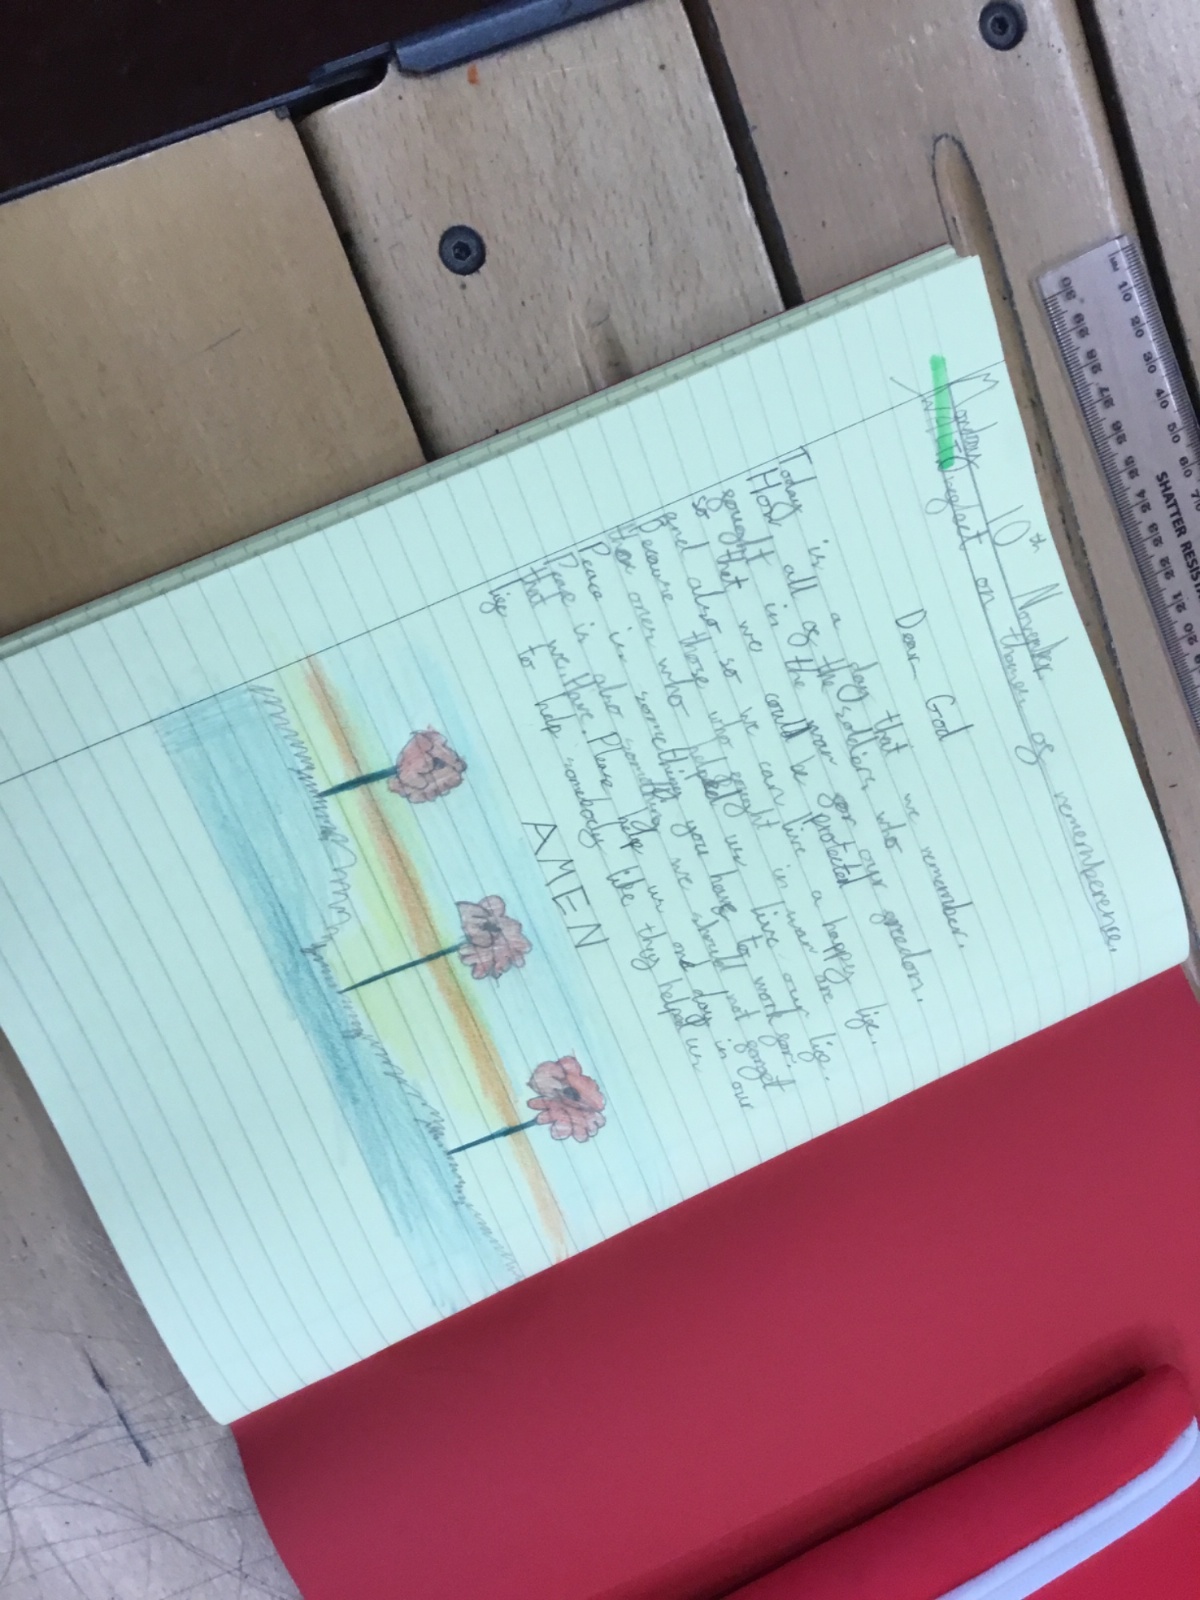 Monday 10th November
WALT: reflect on themes of rememberence.
Dear God
Today is a day that we remember.
How all of the soldiers who
fought in the war for our freedom.
so that we could be protected
and also so we can live a happy life.
Because those who fought in war are
the ones who helped us live our life.
Peace is something you have to work for.
Peace is also something we should not forget
that we have. Please help us one day in our
life to help somebody like they helped us
AMEN
SHATTER RESISTA